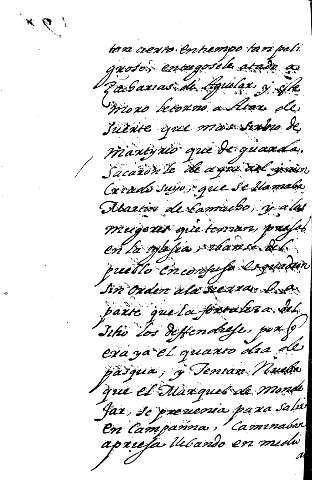 tom cierto en tiempo tan peli
groso, entregosele atado a
Barbarias de Aguilar y este
moro le torno a Atar de
suerte que mas sirbio de
Martyrio que de guarda,
sacaron le de aqui
Criado suyo, que se llamaba
Martin de Camacho, y a las
mugeres que tenian, presas
en la yglesia, ibanse del
pueblo en confusa
sin orden a la sierra
parte que la fortaleza del
sitio los deffendiese, porq
era ya el quarto dia de
pasqua, y tenian Nueba
que el Marques de Monde
Jar, se prevenia para salir
en Campanna, Caminaban
apriesa llebando en medio
a